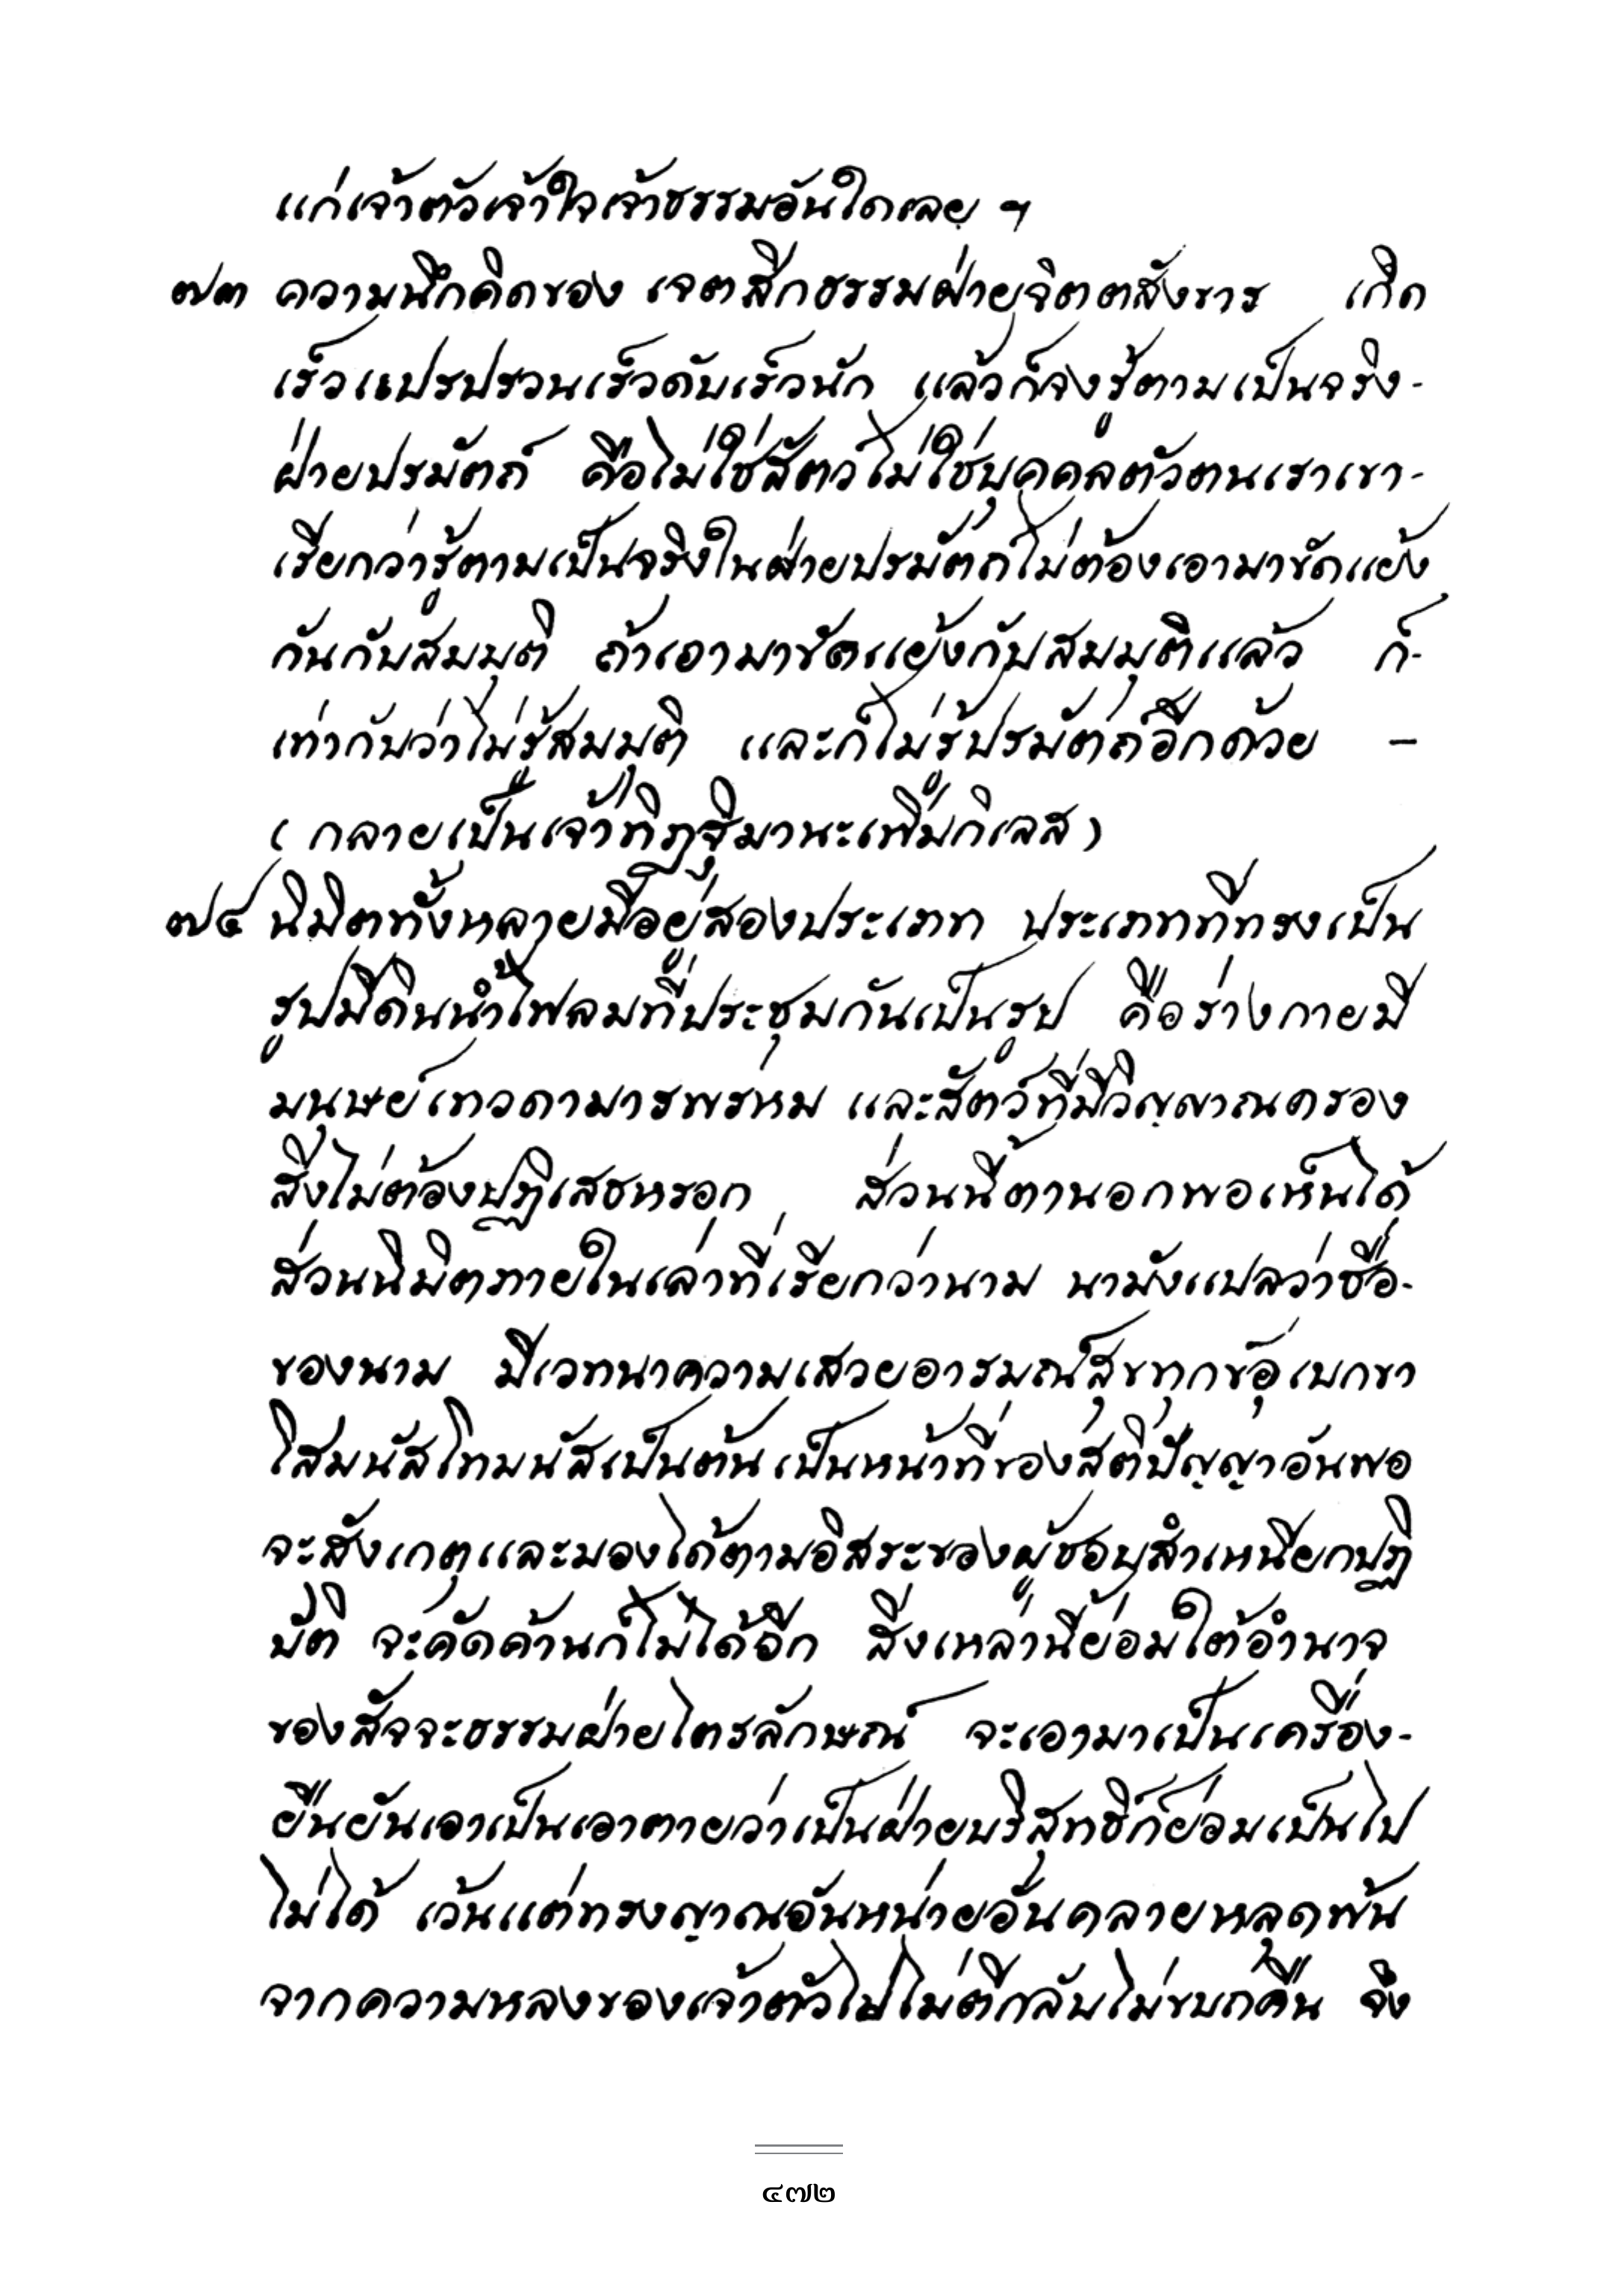 แก่เจ้าตัวเจ้าใจเจ้าธรรมอันใดเลย ฯ
๗๓ ความนึกคิดของ เจตสิกธรรมฝ่ายจิตตสังขาร เกิด
เร็วแปรปรวนเร็วดับเร็วนัก แล้วก็จงรู้ตามเป็นจริง-
ฝ่ายปรมัตถ์ คือไม่ใช่สัตว์ไม่ใช่บุคคลตัวตนเราเขา-
เรียกว่ารู้ตามเป็นจริงในฝ่ายปรมัตถ์ไม่ต้องเอามาขัดแย้ง
กันกับสมมุติ ถ้าเอามาขัดแย้งกับสมมุติแล้ว ก็-
เท่ากับว่าไม่รู้สมมุติ และก็ไม่รู้ปรมัตถ์อีกด้วย –
(กลายเป็นเจ้าทิฏฐิมานะเพิ่มกิเลส)
๗๔ นิมิตทั้งหลายมีอยู่สองประเภท ประเภทที่ทรงเป็น
รูปมีดินน้ำไฟลมที่ประชุมกันเป็นรูป คือร่างกายมี
มนุษย์เทวดามารพรหม และสัตว์ที่มีวิญญาณครอง
สิงไม่ต้องปฏิเสธหรอก ส่วนนี้ตานอกพอเห็นได้
ส่วนนิมิตภายในเล่าที่เรียกว่านาม นามังแปลว่าชื่อ-
ของนาม มีเวทนาความเสวยอารมณ์สุขทุกข์อุเบกขา
โสมนัสโทมนัสเป็นต้น เป็นหน้าที่ของสติปัญญาอันพอ
จะสังเกตุและมองได้ตามอิสระของผู้ชอบสำเหนียกปฏิ
บัติ จะคัดค้านก็ไม่ได้อีก สิ่งเหล่านี้ย่อมใต้อำนาจ
ของสัจจะธรรมฝ่ายไตรลักษณ์ จะเอามาเป็นเครื่อง-
ยืนยันเอาเป็นเอาตายว่าเป็นฝ่ายบริสุทธิ์ก็ย่อมเป็นไป
ไม่ได้ เว้นแต่ทรงญาณอันหน่ายอันคลายหลุดพ้น
จากความหลงของเจ้าตัวไปไม่ตีกลับไม่ขบถคืน จึง
๔๗๒